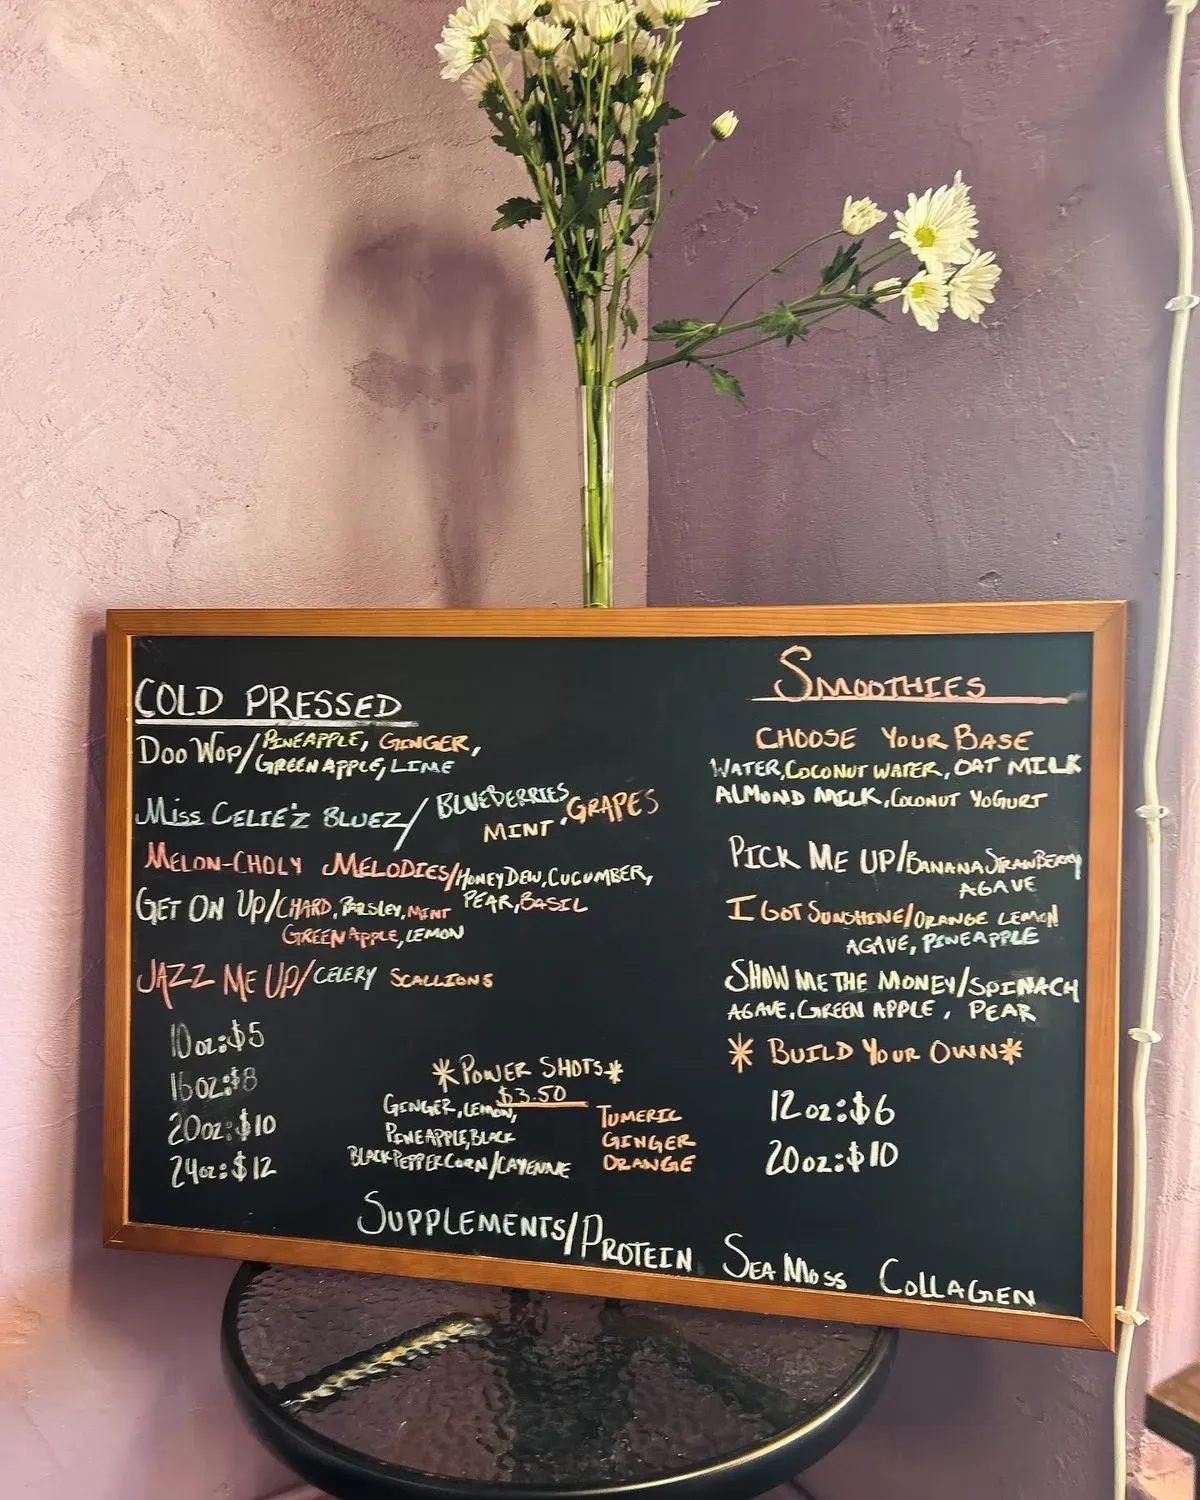 COLD PRESSED
DOO WOP/PINEAPPLE, GINGER,
GREEN APPLE, LIME
MISS CELIE'Z BLUEZ/BLUEBERRIES, GRAPES
MINT
MELON-CHOLY MELODIES/HONEYDEW, CUCUMBER,
PEAR, BASIL
GET ON UP/CHARD, PARSLEY, MINT
GREEN APPLE, LEMON
JAZZ ME UP/CELERY SCALLIONS
10oz:$5
16oz:$8
20oz:$10
24oz:$12
*POWER SHOTS*
$3.50
GINGER, LEMON,
PINEAPPLE, BLACK
BLACK PEPPERCORN/CAYENNE
TUMERIC
GINGER
ORANGE
SMOOTHIES
CHOOSE YOUR BASE
WATER, COCONUT WATER, OAT MILK
ALMOND MILK, COCONUT YOGURT
PICK ME UP/BANANA STRAWBERRY
AGAVE
I GOT SUNSHINE/ORANGE LEMON
AGAVE, PINEAPPLE
SHOW ME THE MONEY/SPINACH
AGAVE, GREEN APPLE, PEAR
*BUILD YOUR OWN*
12oz:$6
20oz:$10
SUPPLEMENTS/PROTEIN SEA MOSS COLLAGEN